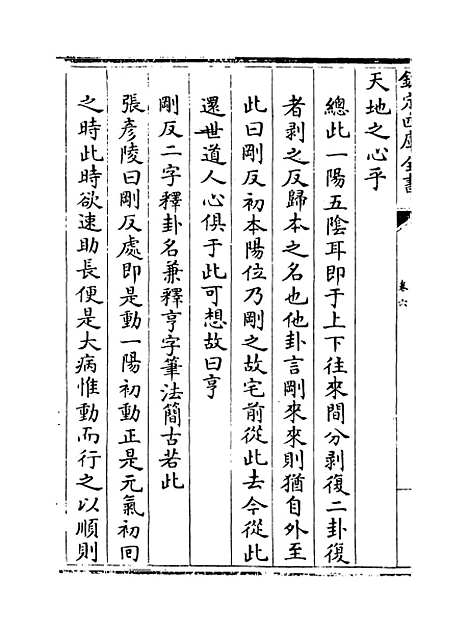 欽定四庫全書
卷六
天地之心乎
總此一陽五陰耳即于上下往來間分剥復二卦復
者剥之反歸本之名也他卦言剛來來則猶自外至
此曰剛反初本陽位乃剛之故宅前從此去今從此
還世道人心俱于此可想故曰亨
剛反二字釋卦名兼釋亨字筆法簡古若此
張彥陵曰剛反處即是動一陽初動正是元氣初回
之時此時欲速助長便是大病惟動而行之以順則